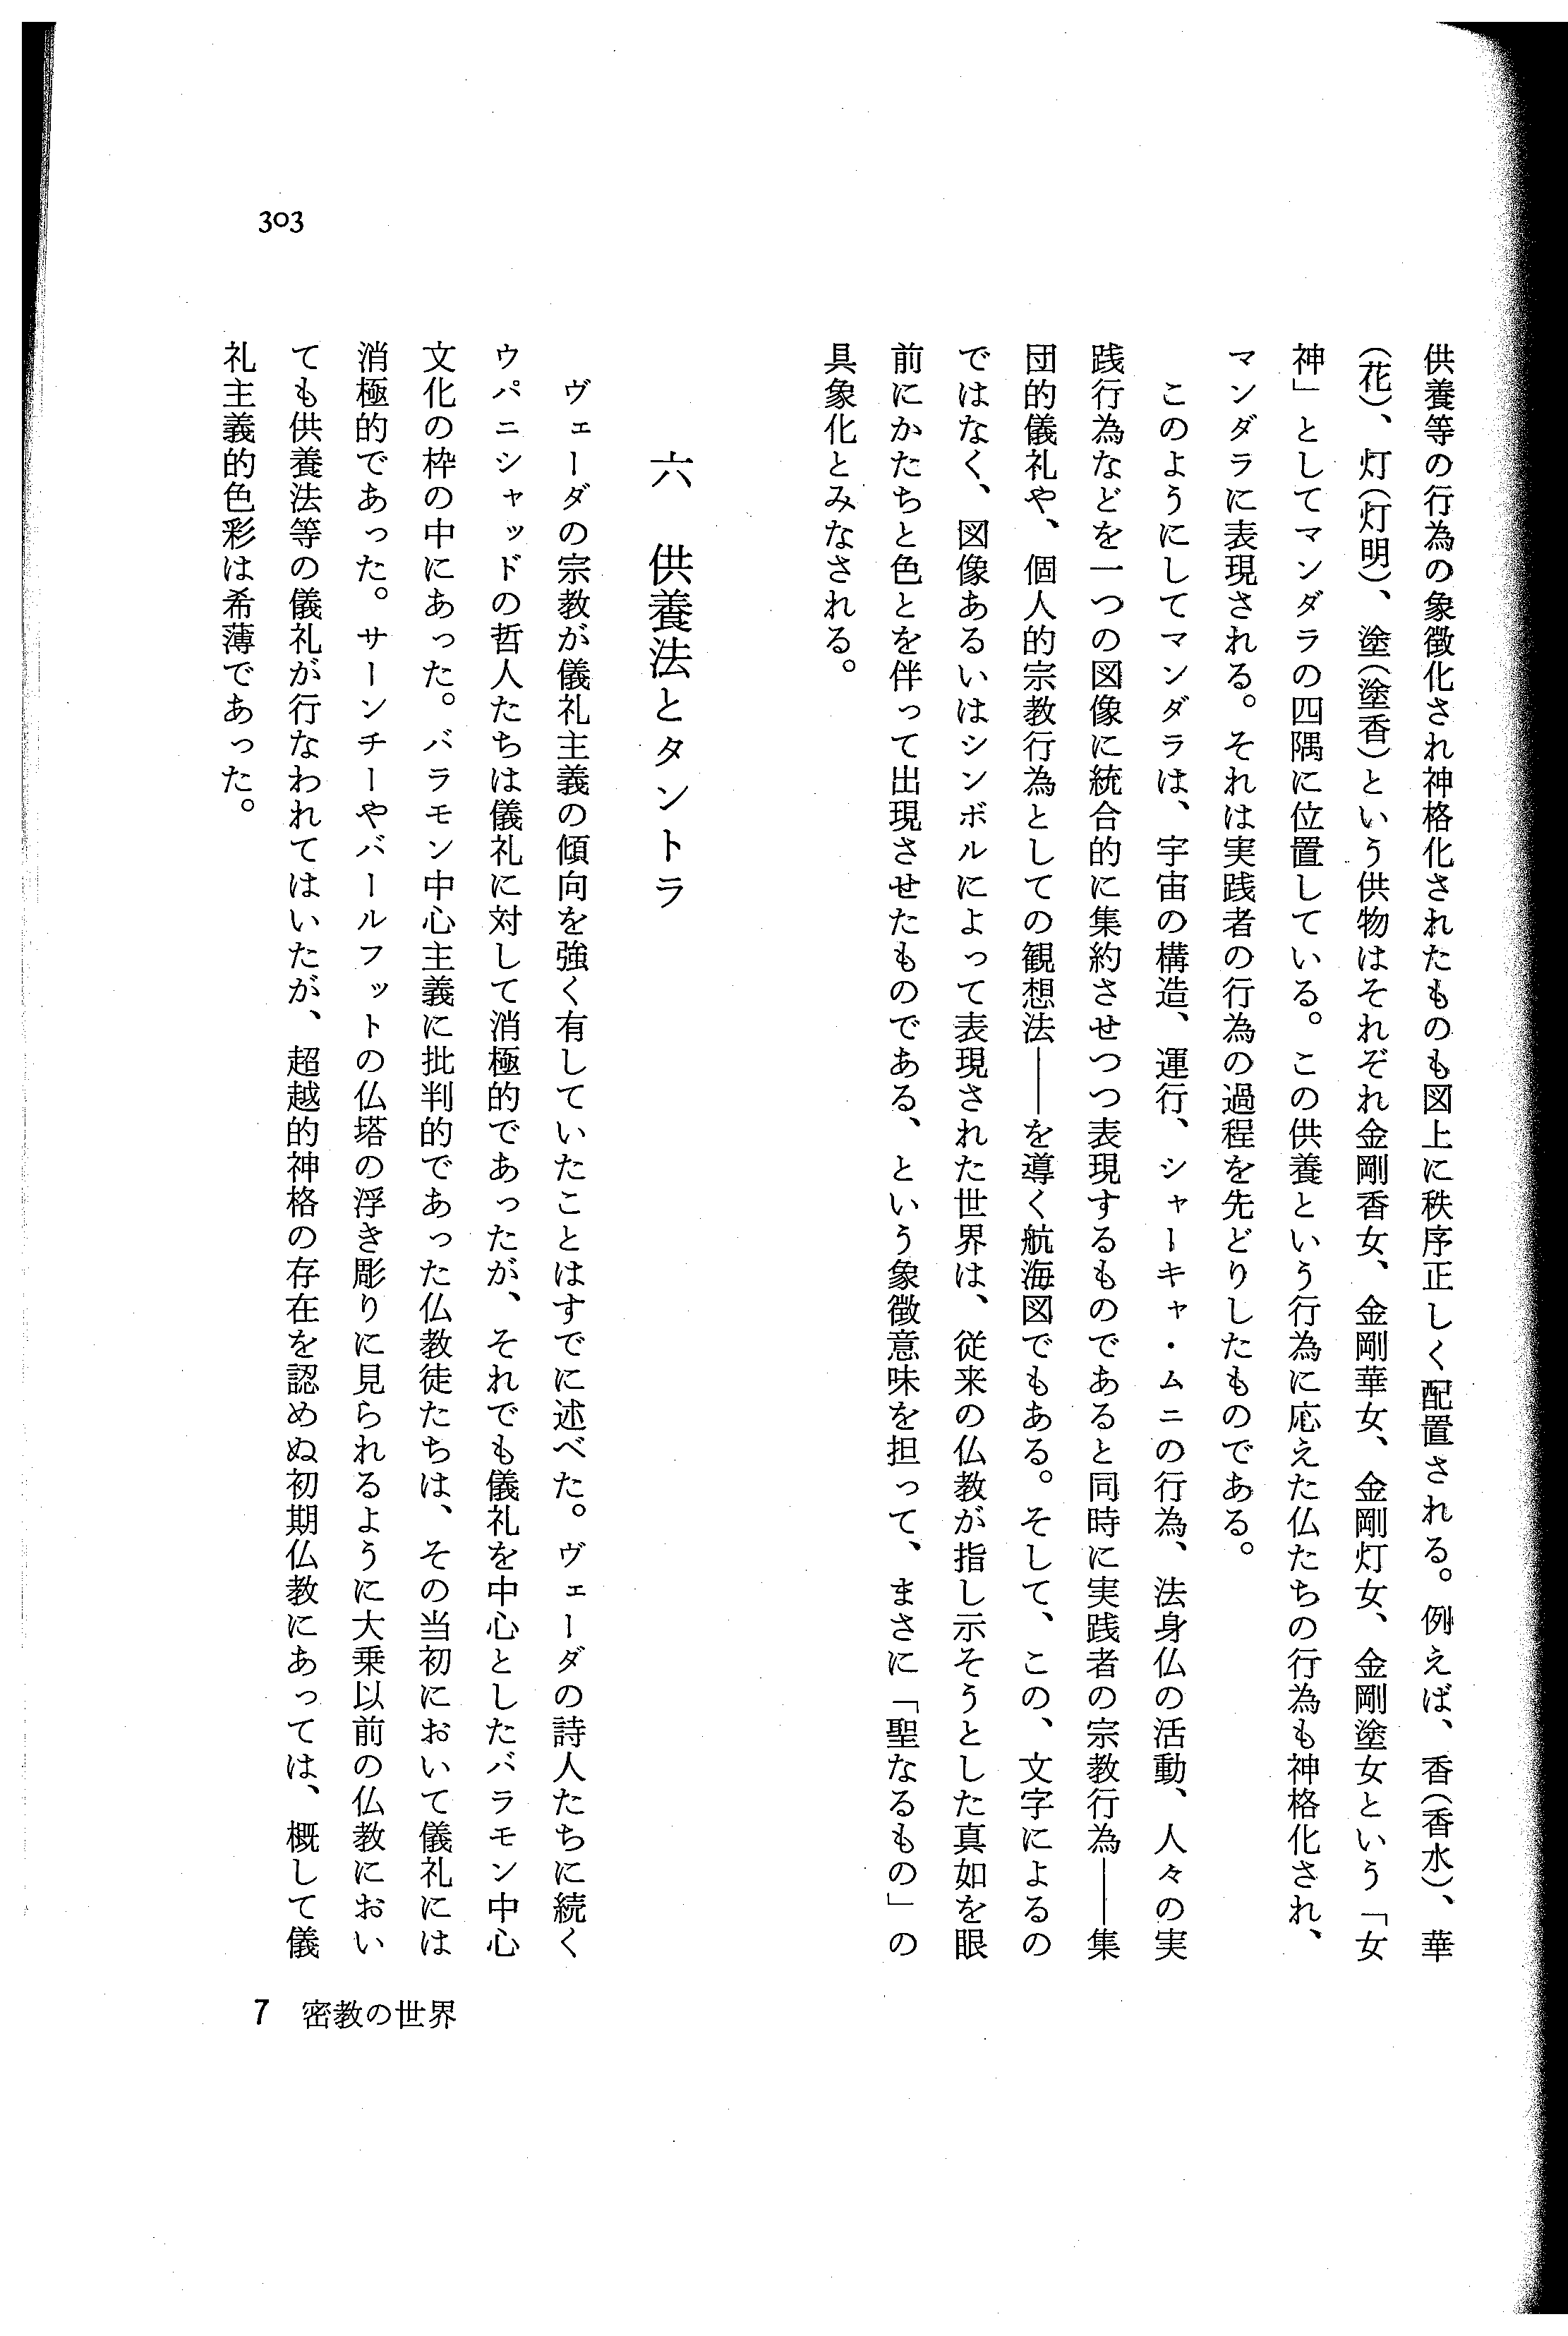 供養等の行為の象徴化され神格化されたものも図上に秩序正しく配置される。例えば、香(香水)、華
(花)、灯(灯明)、塗(塗香)という供物はそれぞれ金剛香女、金剛華女、金剛灯女、金剛塗女という「女
神」としてマンダラの四隅に位置している。この供養という行為に応えた仏たちの行為も神格化され、
マンダラに表現される。それは実践者の行為の過程を先どりしたものである。
このようにしてマンダラは、宇宙の構造、運行、シャーキャ・ムニの行為、法身仏の活動、人々の実
践行為などを一つの図像に統合的に集約させつつ表現するものであると同時に実践者の宗教行為――集
団的儀礼や、個人的宗教行為としての観想法――を導く航海図でもある。そして、この、文字によるの
ではなく、図像あるいはシンボルによって表現された世界は、従来の仏教が指し示そうとした真如を眼
前にかたちと色とを伴って出現させたものである、という象徴意味を担って、まさに「聖なるもの」の
具象化とみなされる。
六 供養法とタントラ
ヴェーダの宗教が儀礼主義の傾向を強く有していたことはすでに述べた。ヴェーダの詩人たちに続く
ウパニシャッドの哲人たちは儀礼に対して消極的であったが、それでも儀礼を中心としたバラモン中心
文化の枠の中にあった。バラモン中心主義に批判的であった仏教徒たちは、その当初において儀礼には
消極的であった。サーンチーやバールフットの仏塔の浮き彫りに見られるように大乗以前の仏教におい
ても供養法等の儀礼が行なわれてはいたが、超越的神格の存在を認めぬ初期仏教にあっては、概して儀
礼主義的色彩は希薄であった。
303
7 密教の世界